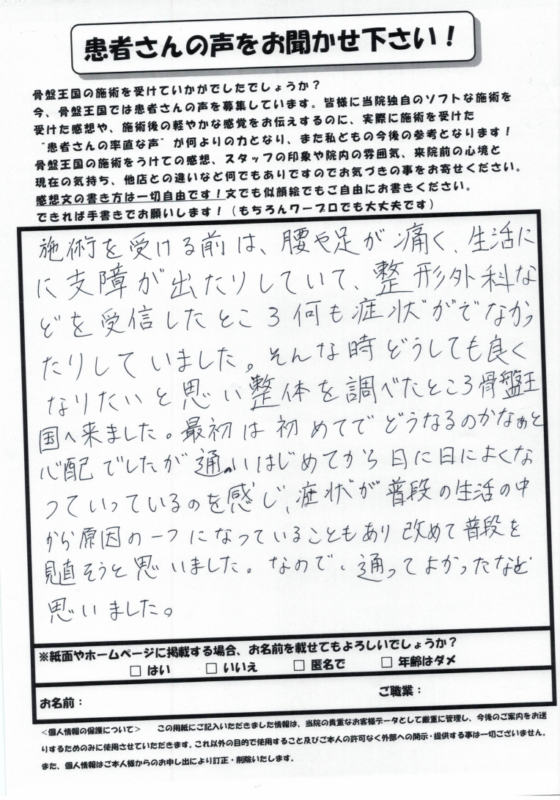 患者さんの声をお聞かせ下さい！
骨盤王国の施術を受けていかがでしたでしょうか？
今、骨盤王国では患者さんの声を募集しています。皆様に当院独自のソフトな施術を
受けた感想や、施術後の軽やかな感覚をお伝えするのに、実際に施術を受けた
"患者さんの率直な声"が何よりの力となり、また私どもの今後の参考となります！
骨盤王国の施術をうけての感想、スタッフの印象や院内の雰囲気、来院前の心境と
現在の気持ち、他店との違いなど何でもありですのでお気づきの事をお寄せください。
感想文の書き方は一切自由です！文でも似顔絵でもご自由にお書きください。
できれば手書きでお願いします！（もちろんワープロでも大丈夫です）
施術を受ける前は、腰や足が痛く、生活に
に支障が出たりしていて、整形外科な
どを受信したところ何も症状がでなかっ
たりしていました。そんな時どうしても良く
なりたいと思い整体を調べたところ骨盤王
国へ来ました。最初は初めてでどうなるのかなぁと
心配でしたが通いはじめてから日に日によくな
っていっているのを感じ、症状が普段の生活の中
から原因の一つになっていることもあり改めて普段を
見直そうと思いました。なので、通ってよかったなと
思いました。
※紙面やホームページに掲載する場合、お名前を載せてもよろしいでしょうか？
□ はい □ いいえ □ 匿名で □ 年齢はダメ
お名前： ご職業：
＜個人情報の保護について＞ この用紙にご記入いただきました情報は、当院の貴重なお客様データとして厳重に管理し、今後のご案内をお送
りするためのみに使用させていただきます。これ以外の目的で使用すること及びご本人の許可なく外部への開示・提供する事は一切ございません。
また、個人情報はご本人様からのお申し出により訂正・削除いたします。